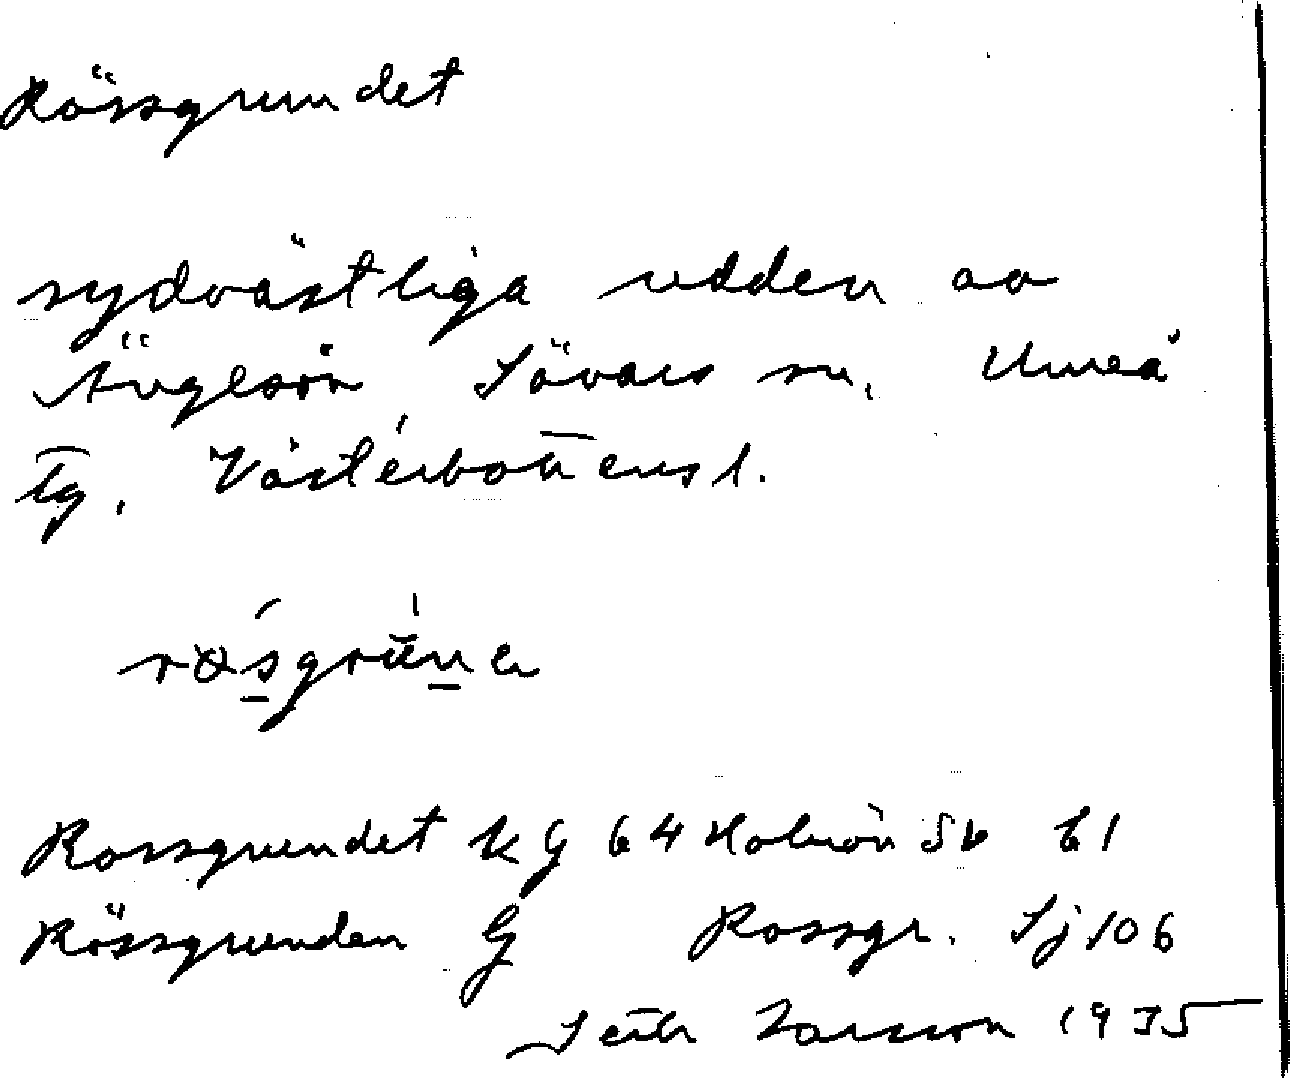 Rössgrundet
sydvästliga udden av
Ängesön, Sävars sn, Umeå
tg, Västerbottens l.
Rossgrundet kg 64 Holmön SV b1
Rössgrunden G Rossgr. Sj 106
Seth Larsson 1935